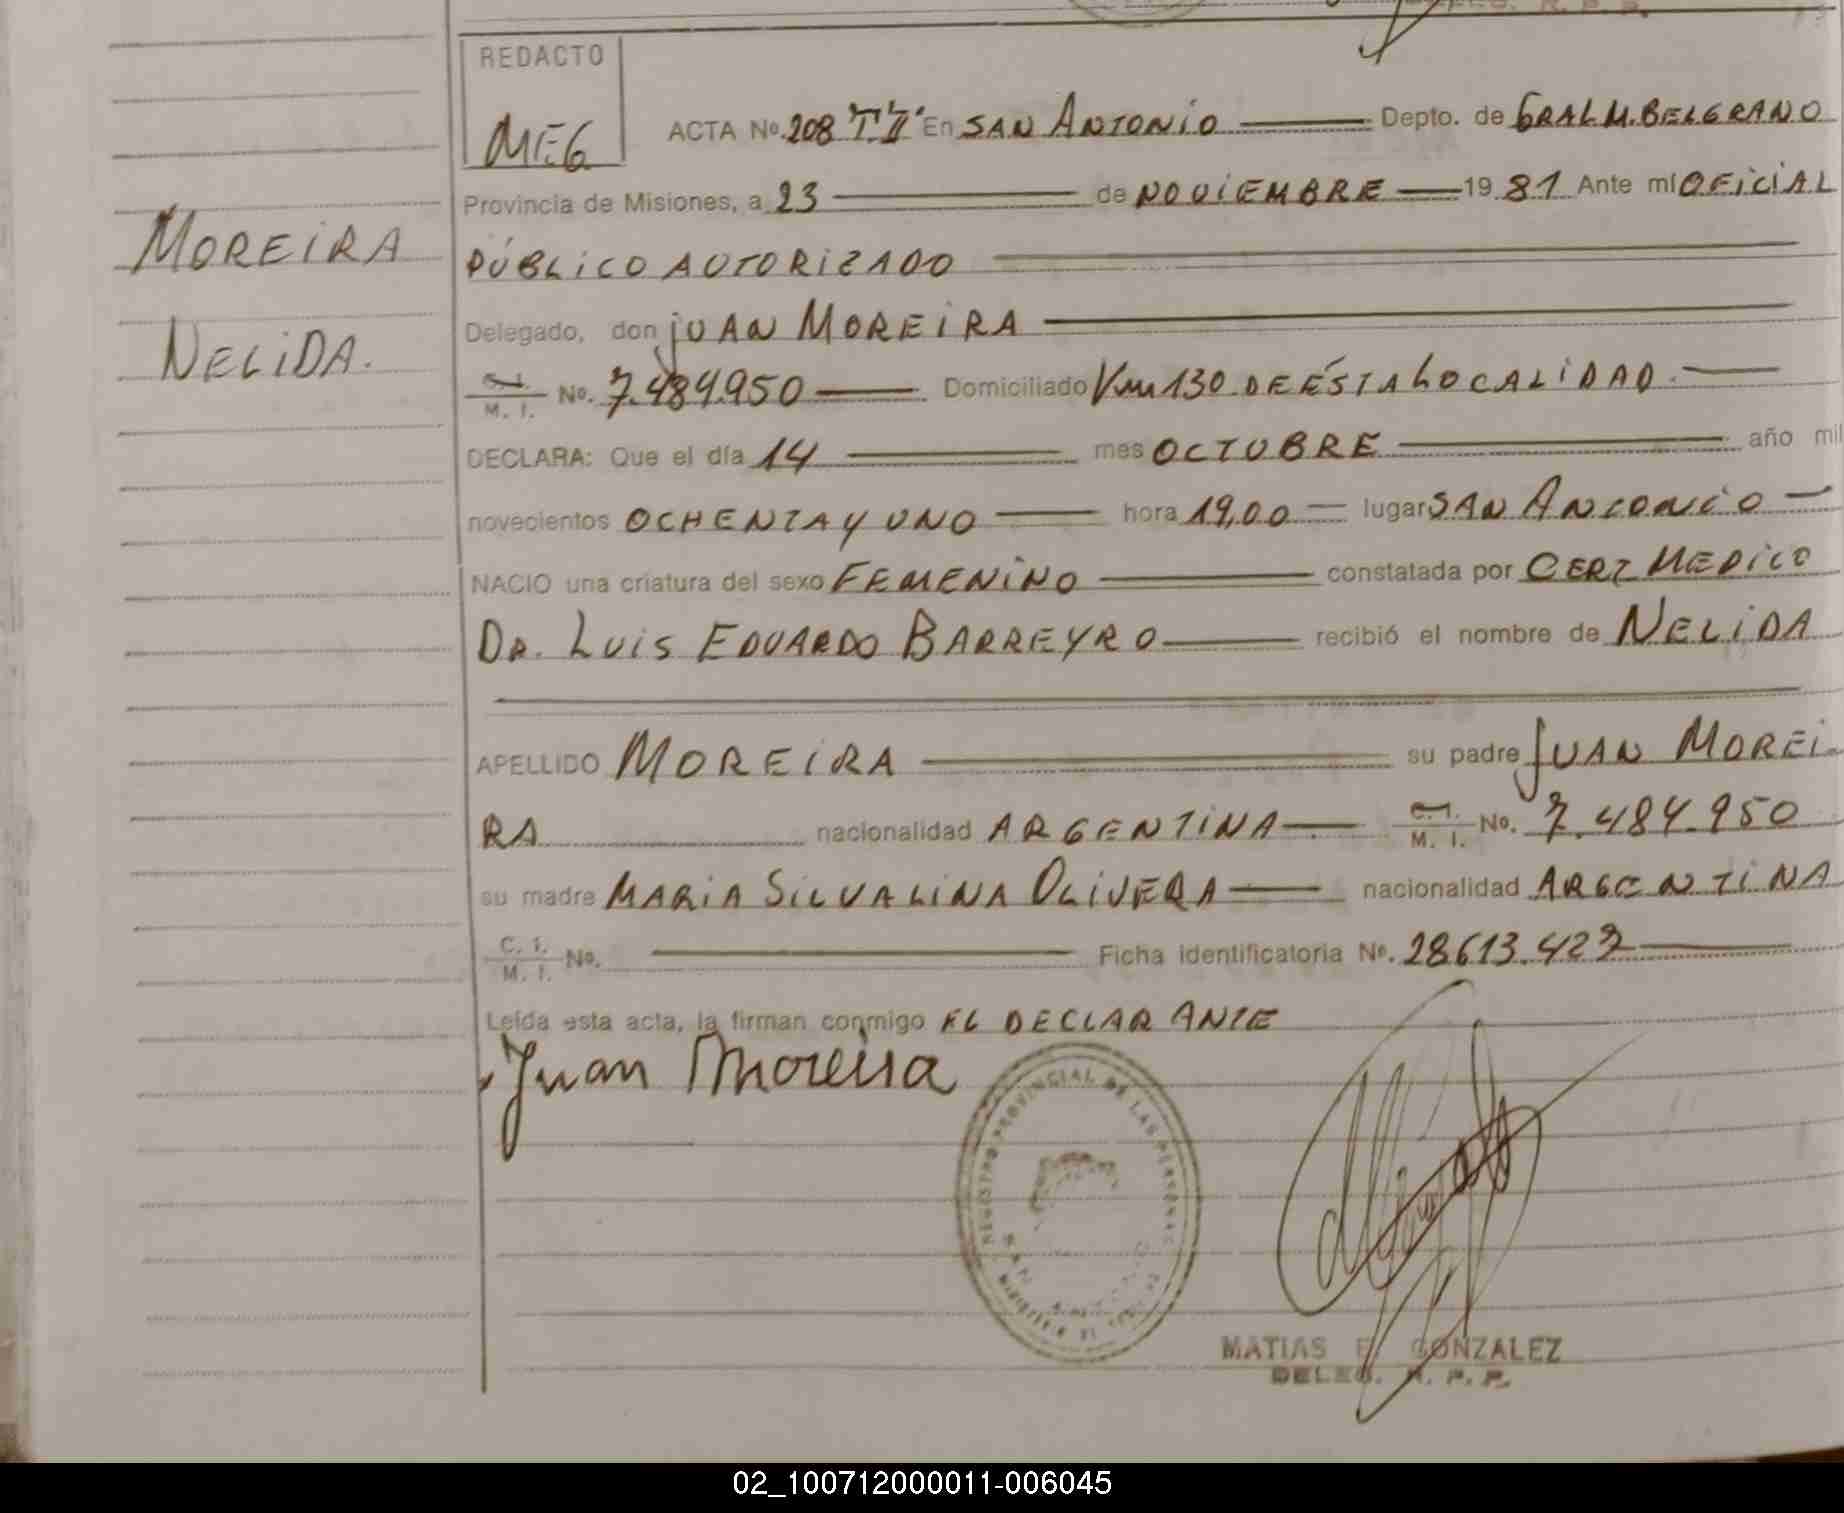 REDACTO
MEG
ACTA No. 208 T.II En SAN ANTONIO Depto. de GRAL M. BELGRANO
Provincia de Misiones, a 23 de NOVIEMBRE 19 81 Ante mí OFICIAL
PÚBLICO AUTORIZADO
MOREIRA
NELIDA.
Delegado, don JUAN MOREIRA
C. I. M. I. No. 7.484.950 Domiciliado Km 130 DE ÉSTA LOCALIDAD.
DECLARA: Que el día 14 mes OCTUBRE año mil
novecientos OCHENTA y UNO hora 19,00 lugar SAN ANTONIO
NACIO una criatura del sexo FEMENINO constatada por CERT MEDICO
DR. LUIS EDUARDO BARREYRO recibió el nombre de NELIDA
APELLIDO MOREIRA su padre JUAN MOREI
RA nacionalidad ARGENTINA C. I. M. I. No. 7.484.950
su madre MARIA SILVALINA OLIVERA nacionalidad ARGENTINA
C. I. M. I. No. Ficha identificatoria No. 28.613.427
Leída esta acta, la firman conmigo EL DECLARANTE
Juan Moreira
REGISTRO PROVINCIAL DE LAS PERSONAS
MATIAS E. GONZALEZ
DELEG. R. P. P.
02_100712000011-006045